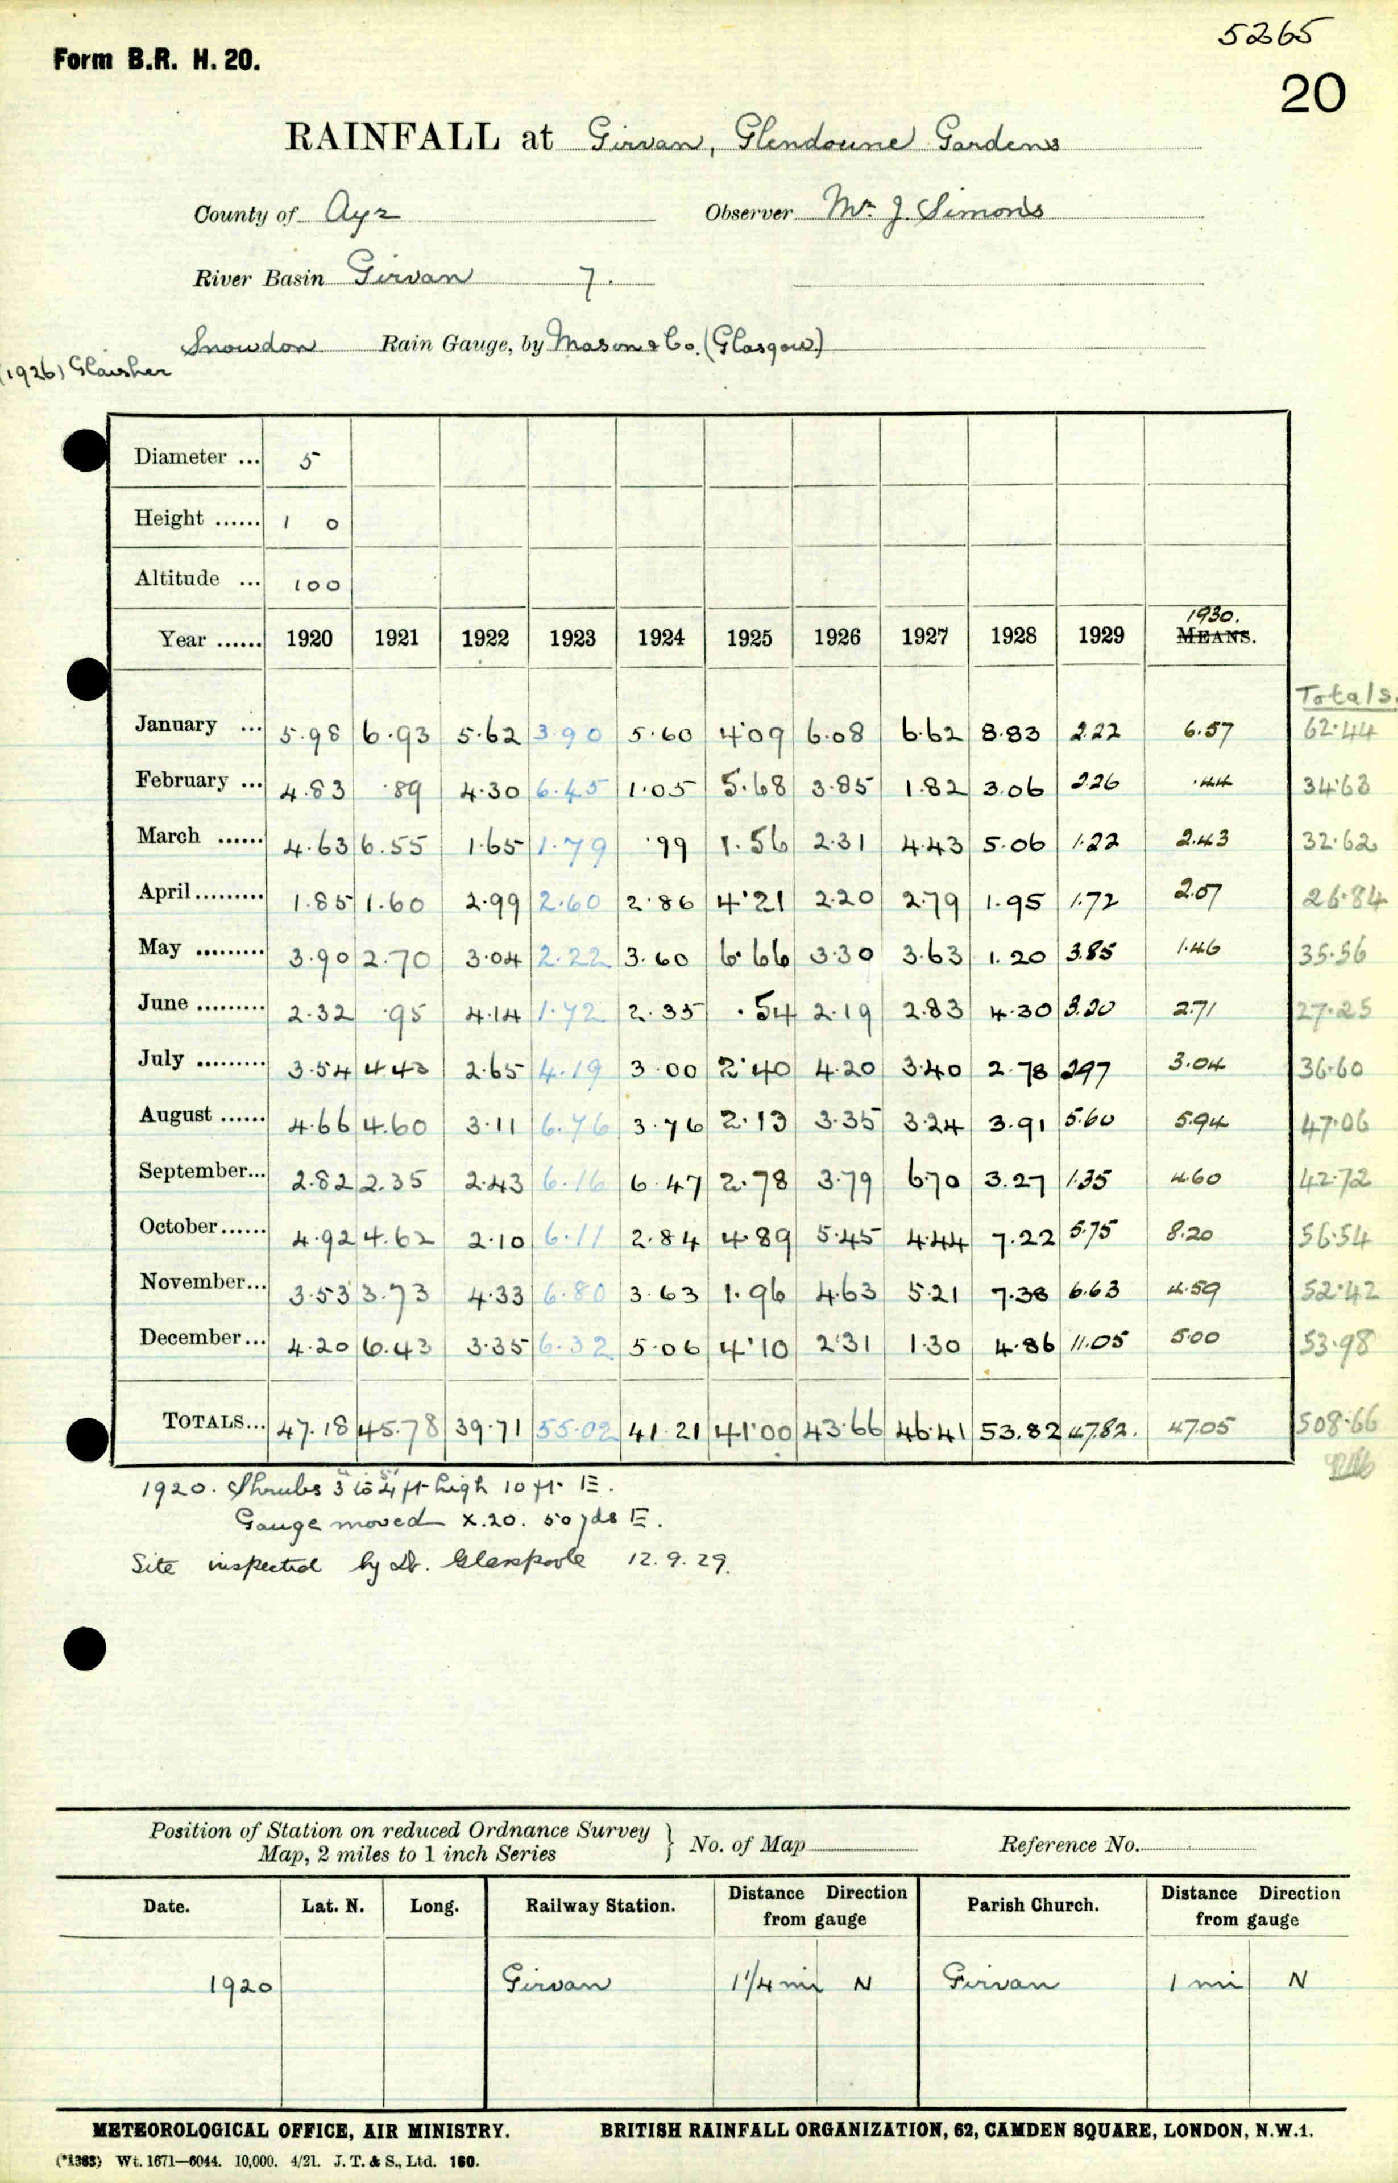 5265
Form B.R. H. 20.
20
RAINFALL at Girvan, Glendoune Gardens
County of Ayr Observer Mr. J. Simons
River Basin Girvan 7.
Snowdon Rain Gauge, by Mason & Co. (Glasgow)
(1926) Glaisher
Diameter ... 5
Height ...... 1 0
Altitude ... 100
1930.
Year ...... 1920 1921 1922 1923 1924 1925 1926 1927 1928 1929 MEANS.
Totals.
January ... 5.98 6.93 5.62 3.90 5.60 4.09 6.08 6.62 8.83 2.22 6.57 62.44
February ... 4.83 .89 4.30 6.45 1.05 5.68 3.85 1.82 3.06 2.26 .44 34.63
March ...... 4.63 6.55 1.65 1.79 .99 1.56 2.31 4.43 5.06 1.22 2.43 32.62
April ......... 1.85 1.60 2.99 2.60 2.86 4.21 2.20 2.79 1.95 1.72 2.07 26.84
May ......... 3.90 2.70 3.04 2.22 3.60 6.66 3.30 3.63 1.20 3.85 1.46 35.56
June ......... 2.32 .95 4.14 1.72 2.35 .54 2.19 2.83 4.30 3.20 2.71 27.25
July ......... 3.54 4.43 2.65 4.19 3.00 2.40 4.20 3.40 2.78 2.97 3.04 36.60
August ...... 4.66 4.60 3.11 6.76 3.76 2.13 3.35 3.24 3.91 5.60 5.94 47.06
September... 2.82 2.35 2.43 6.16 6.47 2.78 3.79 6.70 3.27 1.35 4.60 42.72
October...... 4.92 4.62 2.10 6.11 2.84 4.89 5.45 4.44 7.22 5.75 8.20 56.54
November... 3.53 3.73 4.33 6.80 3.63 1.96 4.63 5.21 7.38 6.63 4.59 52.42
December... 4.20 6.43 3.35 6.32 5.06 4.10 2.31 1.30 4.86 11.05 5.00 53.98
TOTALS... 47.18 45.78 39.71 55.02 41.21 41.00 43.66 46.41 53.82 47.82. 47.05 508.66
1920. Shrubs 3 to 4 ft high 10 ft. E.
Gauge moved X.20. 50 yds E.
Site inspected by Dr. Glasspoole 12.9.29.
Position of Station on reduced Ordnance Survey
Map, 2 miles to 1 inch Series } No. of Map Reference No.
Date. Lat. N. Long. Railway Station. Distance Direction from gauge Parish Church. Distance Direction from gauge
1920 Girvan 1 1/4 mi N Girvan 1 mi N
METEOROLOGICAL OFFICE, AIR MINISTRY. BRITISH RAINFALL ORGANIZATION, 62, CAMDEN SQUARE, LONDON, N.W.1.
(*1383) Wt. 1671—6044. 10,000. 4/21. J. T. & S., Ltd. 160.